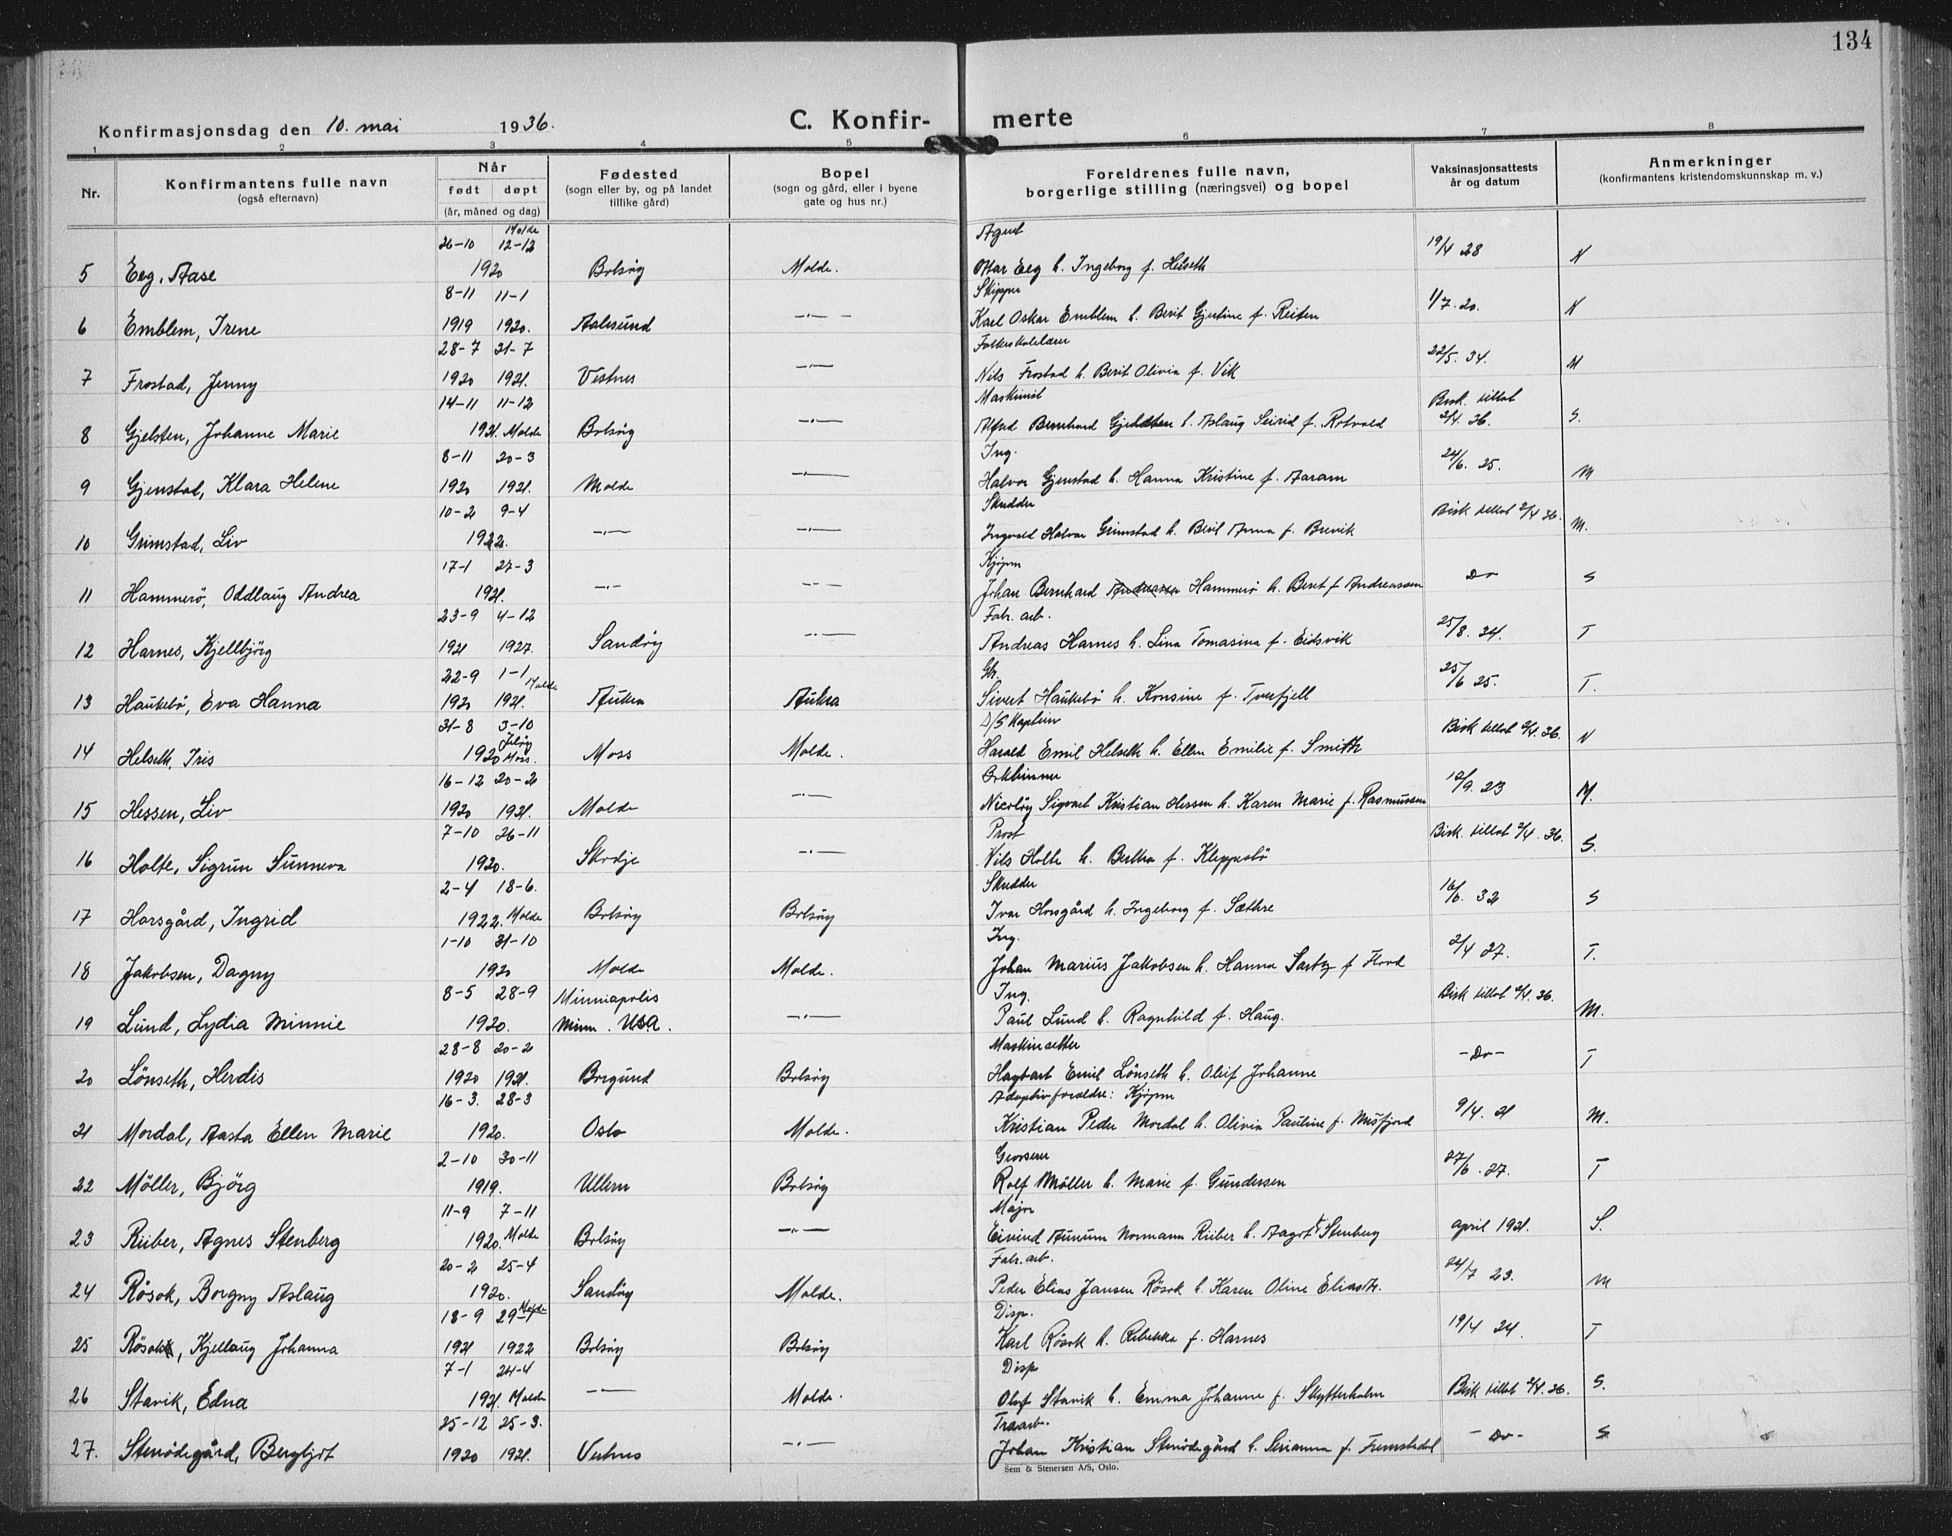 134
Konfirmasjonsdag den 10. mai 1936.
C. Konfir- merte
1 2 3 4 5 6 7 8
Nr. Konfirmantens fulle navn (også efternavn) Når født døpt (år, måned og dag) Fødested (sogn eller by, og på landet tillike gård) Bopel (sogn og gård, eller i byene gate og hus nr.) Foreldrenes fulle navn, borgerlige stilling (næringsvei) og bopel Vaksinasjonsattests år og datum Anmerkninger (konfirmantens kristendomskunnskap m. v.)
26-10 Molde 12-12 Agent 19/4 28
5 Eeg, Aase 1920 Bolsöy Molde. Ottar Eeg h. Ingeborg f. Helseth N
8-11 11-1 Skipper 1/7. 20.
6 Emblem, Irene 1919 1920. Aalesund -"- Karl Oskar Emblem h. Berit Gjertine f. Reiten N
28-7 31-7 Folkeskolelærer 22/5. 34.
7 Frostad, Jenny 1920 1921. Vestnes -"- Nils Frostad h. Berit Olivia f. Vik M
14-11 11-12 Maskinist Bisk. tillot
8 Gjelsten, Johanne Marie 1921. Molde Bolsöy -"- Alfred Bernhard Gjelsten h. Aslaug Seirid f. Rotvold 2/4 36. S.
8-11 20-3 Ing. 24/6. 25.
9 Gjenstad, Klara Helene 1920 1921. Molde -"- Halvor Gjenstad h. Hanna Kristine f. Aaram M
10-2 9-4 Skredder Bisk tillot 2/4 36.
10 Grimstad, Liv 1922. -"- -"- Ingvald Halvor Grimstad h. Beril Anna f. Brevik M.
17-1 27-3 Kjöpm
11 Hammerö, Oddlaug Andrea 1921. -"- -"- Johan Bernhard Andreassen Hammerö h. Beret f Andreassen Do S
23-9 4-12 Fabr. arb. 25/8. 34.
12 Harnes, Kjellbjörg 1921 1927. Sandöy -"- Andreas Harnes h. Lina Tomasina f. Eidsvik T
22-9 1-1 Molde Gbr. 25/6 25.
13 Haukebö, Eva Hanna 1920 1921. Aukra Aukra Sivert Haukebö h. Konsine f. Tverfjell T.
31-8 3-10 D/S Kaptein Bisk tillot 2/4. 36.
14 Helseth, Iris 1920 Jelöy Moss. Moss Molde. Harald Emil Helseth h. Ellen Emilie f. Smith N
16-12 20-2 12/9. 23
15 Hessen, Liv 1920 1921. Molde -"- Nicolay Sigvart Kristian Hessen h. Karen Marie f. Rasmussen M.
7-10 26-11 Prost Bisk. tillot 2/4. 36.
16 Holte, Sigrun Sunneva 1920. Skodje -"- Nils Holte h. Bertha f. Kleppestö S.
2-4 18-6. Skredder 16/6. 32
17 Horsgård, Ingrid 1922. Molde Bolsöy Bolsöy Ivar Horsgård h. Ingeborg f. Sæthre S
1-10 31-10 Ing. 2/4 27.
18 Jakobsen, Dagny 1920 Molde Molde. Johan Marius Jakobsen h. Hanna f T.
8-5 28-9 Minniapolis Ing. Bisk tillot 2/4. 36.
19 Lund, Lydia Minnie 1920. Minn. USA. -"- Paul Lund h. Ragnhild f. Haug. M.
28-8 20-2 Maskinsetter
20 Lönseth, Herdis 1920 1921. Borgund Bolsöy Hagbart Emil Lönseth h. Oluf Johanne -Do- T
16-3. 28-3 Adoptivforældre: Kjöpm 9/4. 21
21 Mordal, Aasta Ellen Marie 1920. Oslo Molde. Kristian Peder Mordal h. Olivia Pauline f. Misfjord M.
2-10 30-11 Grosserer 27/6. 27.
22 Möller, Björg 1919. Ullern Bolsöy Rolf Möller h. Marie f. Gundersen T
11-9 7-11 Major
23 Riiber, Agnes Stenberg 1920. Molde Bolsöy -"- Eivind Aunum Normann Riiber h. Aagot f. Stenberg april 1921. S.
20-2 25-4 Fabr. arb. 24/7 23.
24 Rösok, Borgny Aslaug 1920. Sandöy Molde. Peder Elias Jansen Rösok h. Karen Oline Eliasdt. M
18-9 29-1 Molde Disp. 19/4 24.
25 Rösok, Kjellaug Johanna 1921 1922 Bolsöy Bolsöy Karl Rösok h. Rebekka f. Harnes T
7-1 24-4 Disp
26 Stavik, Edna 1921. Molde -"- Molde. Oluf Stavik h. Emma Johanne f. Skytterholm Bisk tillot 2/4. 36. S.
25-12 25-3. Traarb.
27. Stenödegård, Bergljot 1920 1921. Vestnes -"- Johan Kristian Stenödegård h. Serianna f. Fremstedal -Do- S
Sem & Stenersen A/S, Oslo.